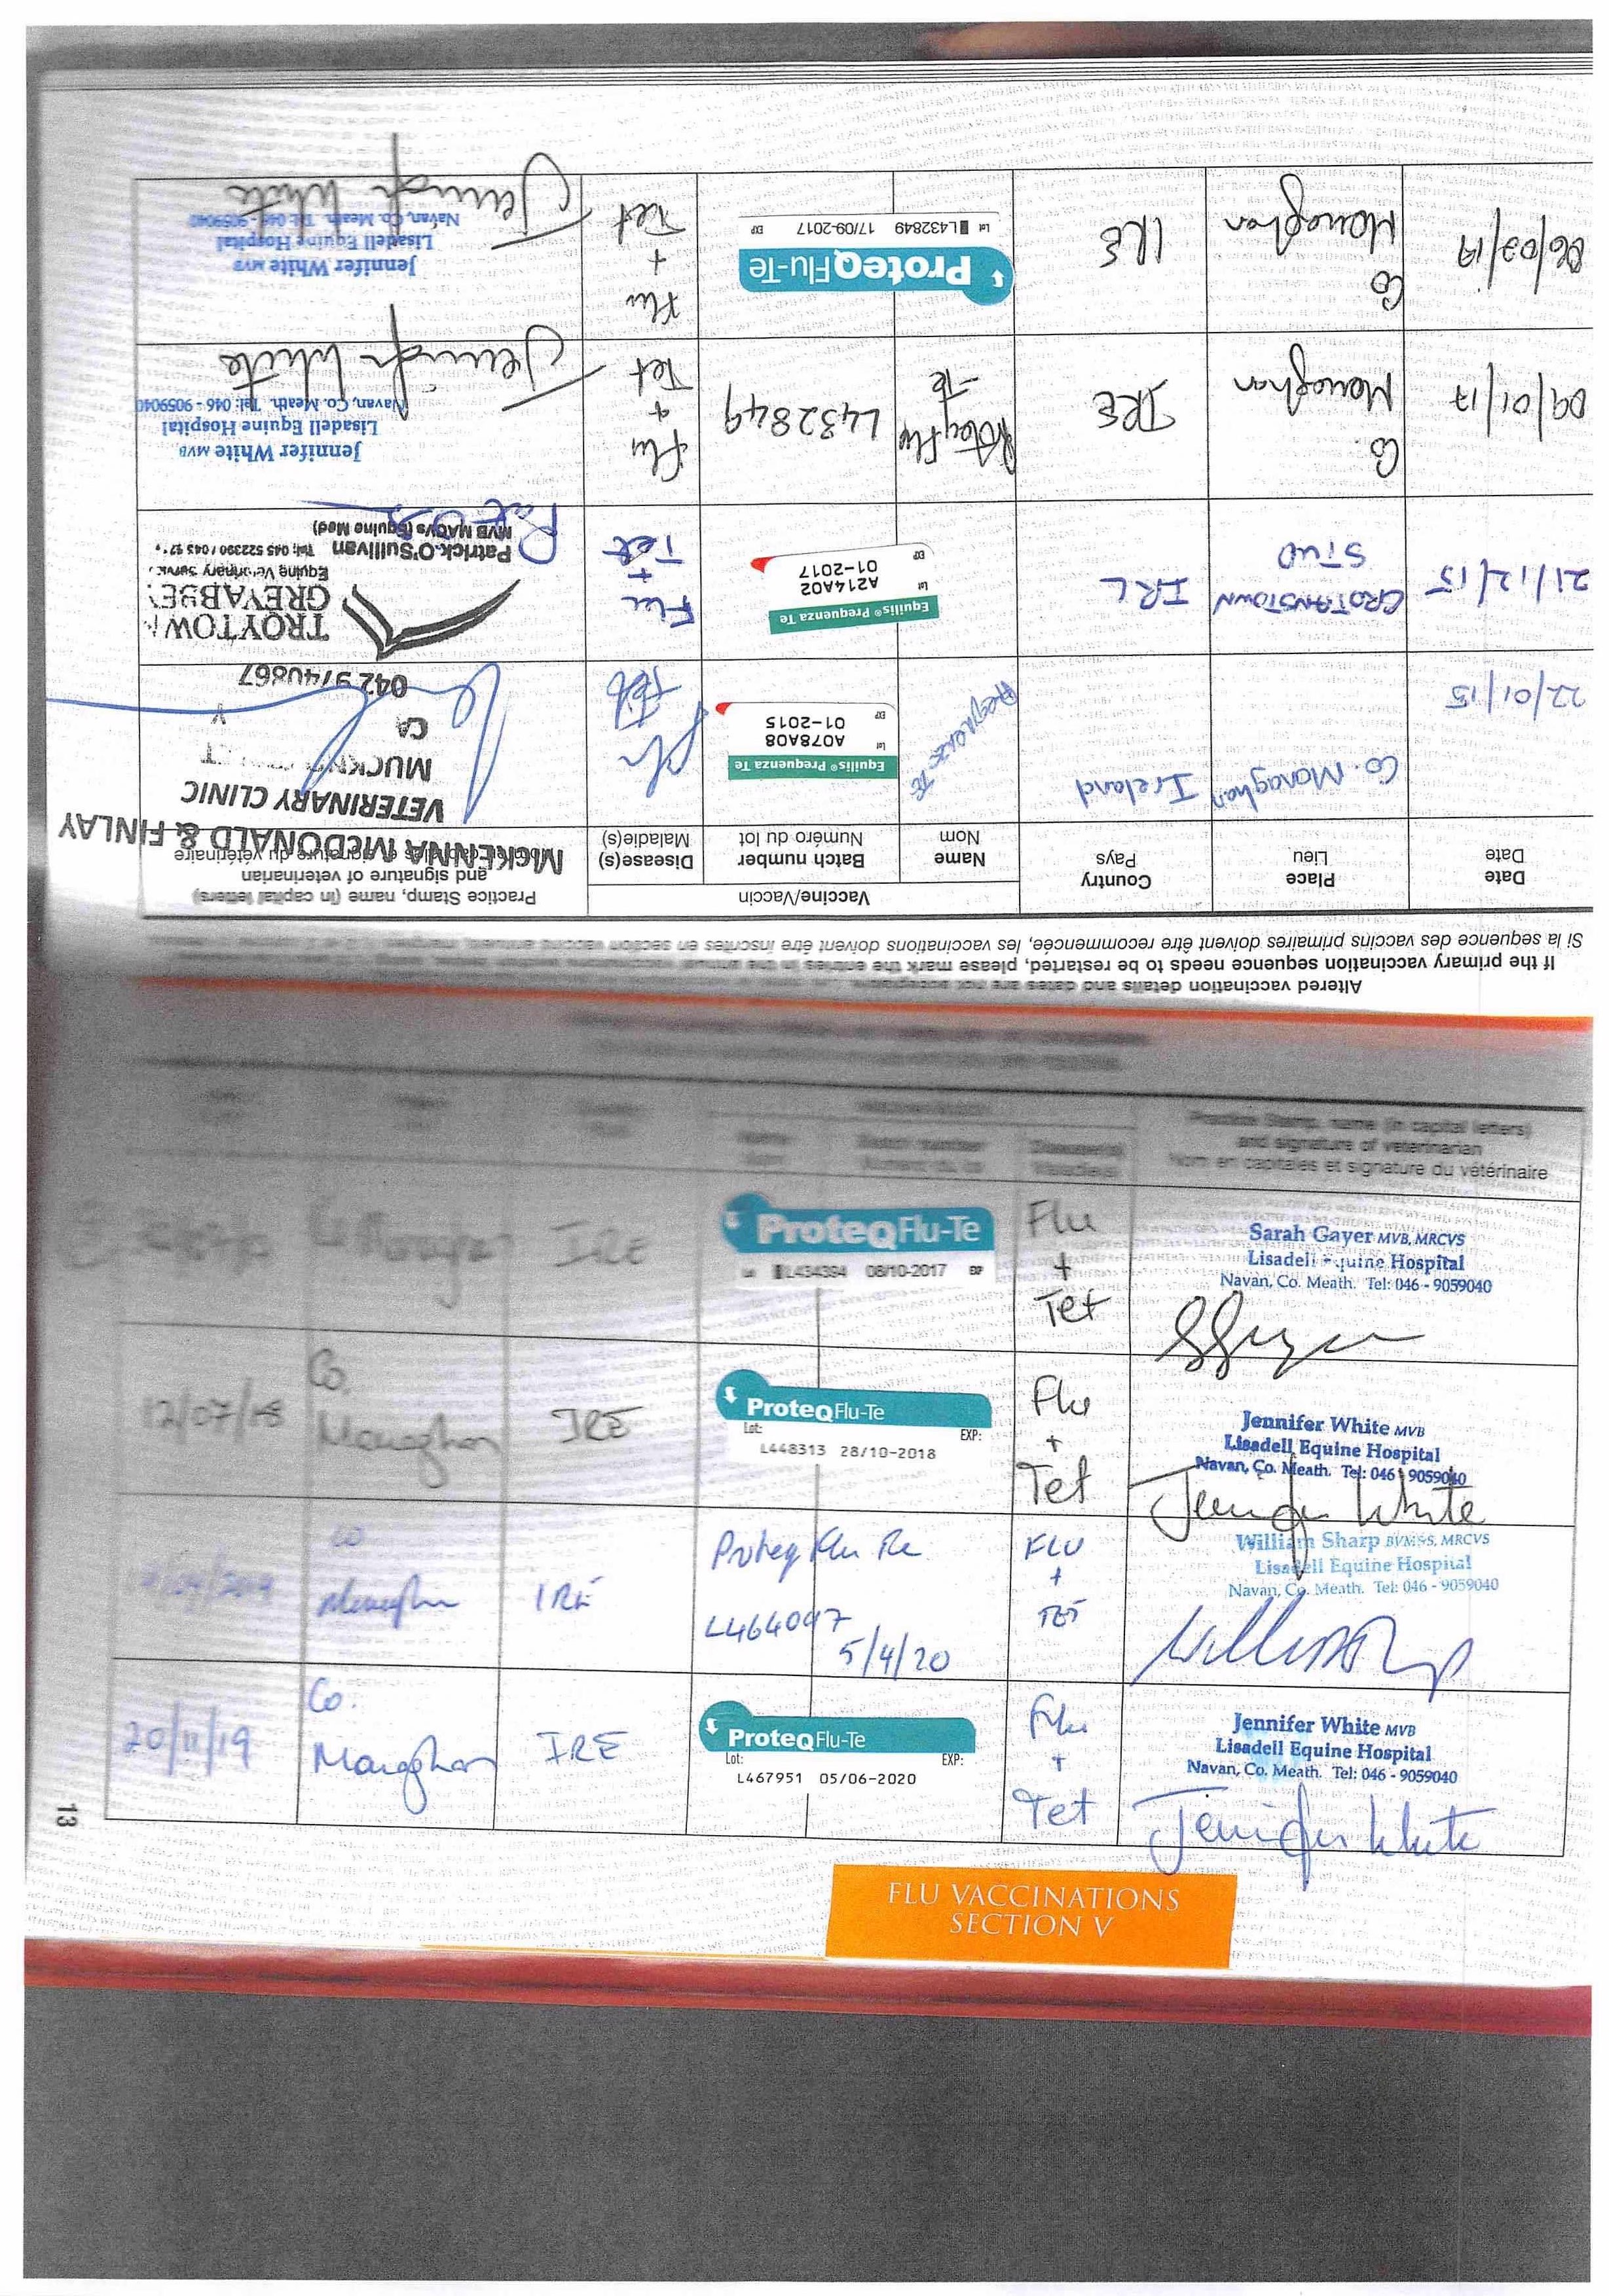 Altered vaccination details and dates are not acceptable
If the primary vaccination sequence needs to be restarted, please mark the entries in the annual
Si la séquence des vaccins primaires doivent être recommencée, les vaccinations doivent être inscrites en section vaccins annuels,
Vaccine/Vaccin
Practice Stamp, name (in capital letters)
and signature of veterinarian
Date
Date
Place
Lieu
Country
Pays
Name
Nom
Batch number
Numéro du lot
Disease(s)
Maladie(s)
signature du vétérinaire
McKENNA McDONALD & FINLAY
VETERINARY CLINIC
042 9740867
22/01/15
Co. Monaghan
Ireland
Prequenza Te
Equilis® Prequenza Te
Lot A078A08
EXP 01-2015
Flu
Tet
21/12/15
CROTANSTOWN
STUD
IRL
Equilis® Prequenza Te
Lot A214A02
EXP 01-2017
Flu
+
Tet
TROYTOWN
GREYABBEY
Equine Veterinary
Patrick O'Sullivan Tel: 045 522390 / 045
MVB MACVs (Equine Med)
09/01/17
Co.
Monaghan
IRE
ProteqFlu
-Te
L432849
Flu
+
Tet
Jennifer White MVB
Lisadell Equine Hospital
Navan, Co. Meath. Tel: 046 - 9059040
Jennifer White
Co
Monaghan
IRE
ProteqFlu-Te
Lot L432849 17/09-2017 EXP
Flu
+
Tet
Jennifer White MVB
Lisadell Equine Hospital
Navan, Co. Meath. Tel: 046 - 9059040
Jennifer White
Practice Stamp, name (in capital letters)
and signature of veterinarian
Nom en capitales et signature du vétérinaire
Monaghan
IRE
ProteqFlu-Te
L434394 08/10-2017 EXP
Flu
+
Tet
Sarah Gayer MVB, MRCVS
Lisadell Equine Hospital
Navan, Co. Meath. Tel: 046 - 9059040
SGayer
12/07/18
Co.
Monaghan
IRE
ProteqFlu-Te
Lot: EXP:
L448313 28/10-2018
Flu
+
Tet
Jennifer White MVB
Lisadell Equine Hospital
Navan, Co. Meath. Tel: 046 - 9059040
Jennifer White
CO
Monaghan
IRE
Proteq Flu Te
L464097
5/4/20
FLU
+
TET
William Sharp BVM&S, MRCVS
Lisadell Equine Hospital
Navan, Co. Meath. Tel: 046 - 9059040
20/11/19
Co.
Monaghan
IRE
ProteqFlu-Te
Lot: EXP:
L467951 05/06-2020
Flu
+
Tet
Jennifer White MVB
Lisadell Equine Hospital
Navan, Co. Meath. Tel: 046 - 9059040
Jennifer White
13
FLU VACCINATIONS
SECTION V